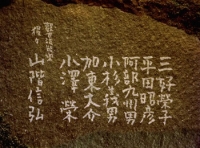 三好榮子
平田昭彦
阿部九州男
小杉義男
加東大介
小澤榮
山階信弘